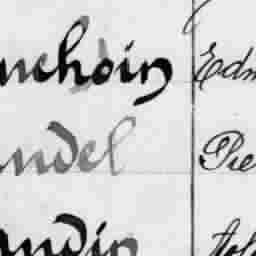 uchoin Edm
andel Pie
andin